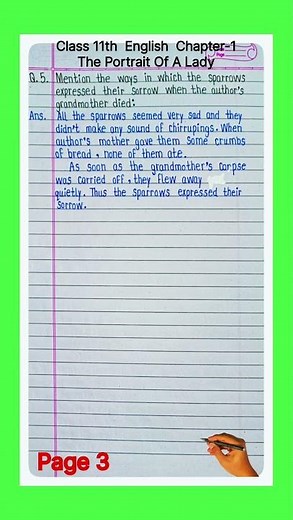 Class 11th English Chapter-1
The Portrait Of A Lady
Q.5. Mention the ways in which the sparrows
expressed their sorrow when the author's
grandmother died:
Ans. All the sparrows seemed very sad and they
didn't make any sound of chirrupings. When
author's mother gave them some crumbs
of bread, none of them ate.
As soon as the grandmother's corpse
was carried off, they flew away
quietly. Thus the sparrows expressed their
sorrow.
Page 3